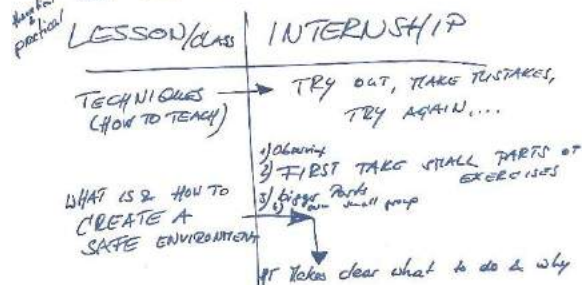 &
practical
LESSON/class
INTERNSHIP
TECHNIQUES
(HOW TO TEACH)
TRY OUT, MAKE MISTAKES,
TRY AGAIN,...
1) Observing
2) FIRST TAKE SMALL PARTS OF
EXERCISES
3) Bigger Parts
own small group
WHAT IS & HOW TO
CREATE A
SAFE ENVIRONMENT
Makes clear what to do & why